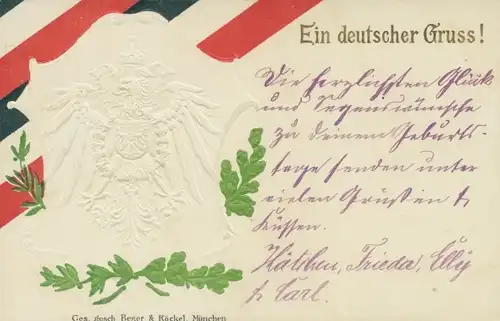 Ein deutscher Gruss!
Die herzlichsten Glück
und Segenswünsche
zu deinem Geburts-
tage senden unter
vielen Grüßen &
Küssen.
Kätchen, Frieda, Elly
& Carl.
Ges. gesch. Beger & Röckel, München